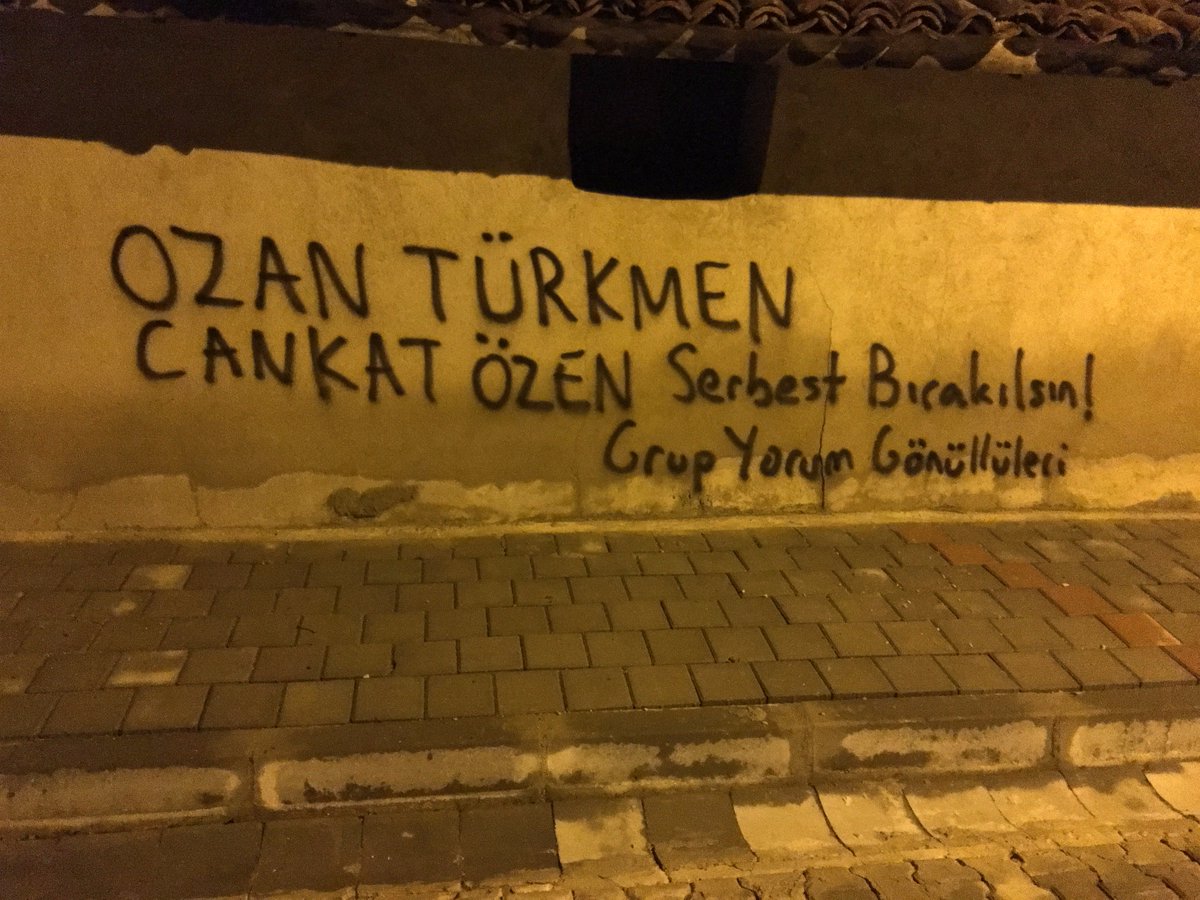 OZAN TÜRKMEN
CANKAT ÖZEN Serbest Bırakılsın!
Grup Yorum Gönüllüleri